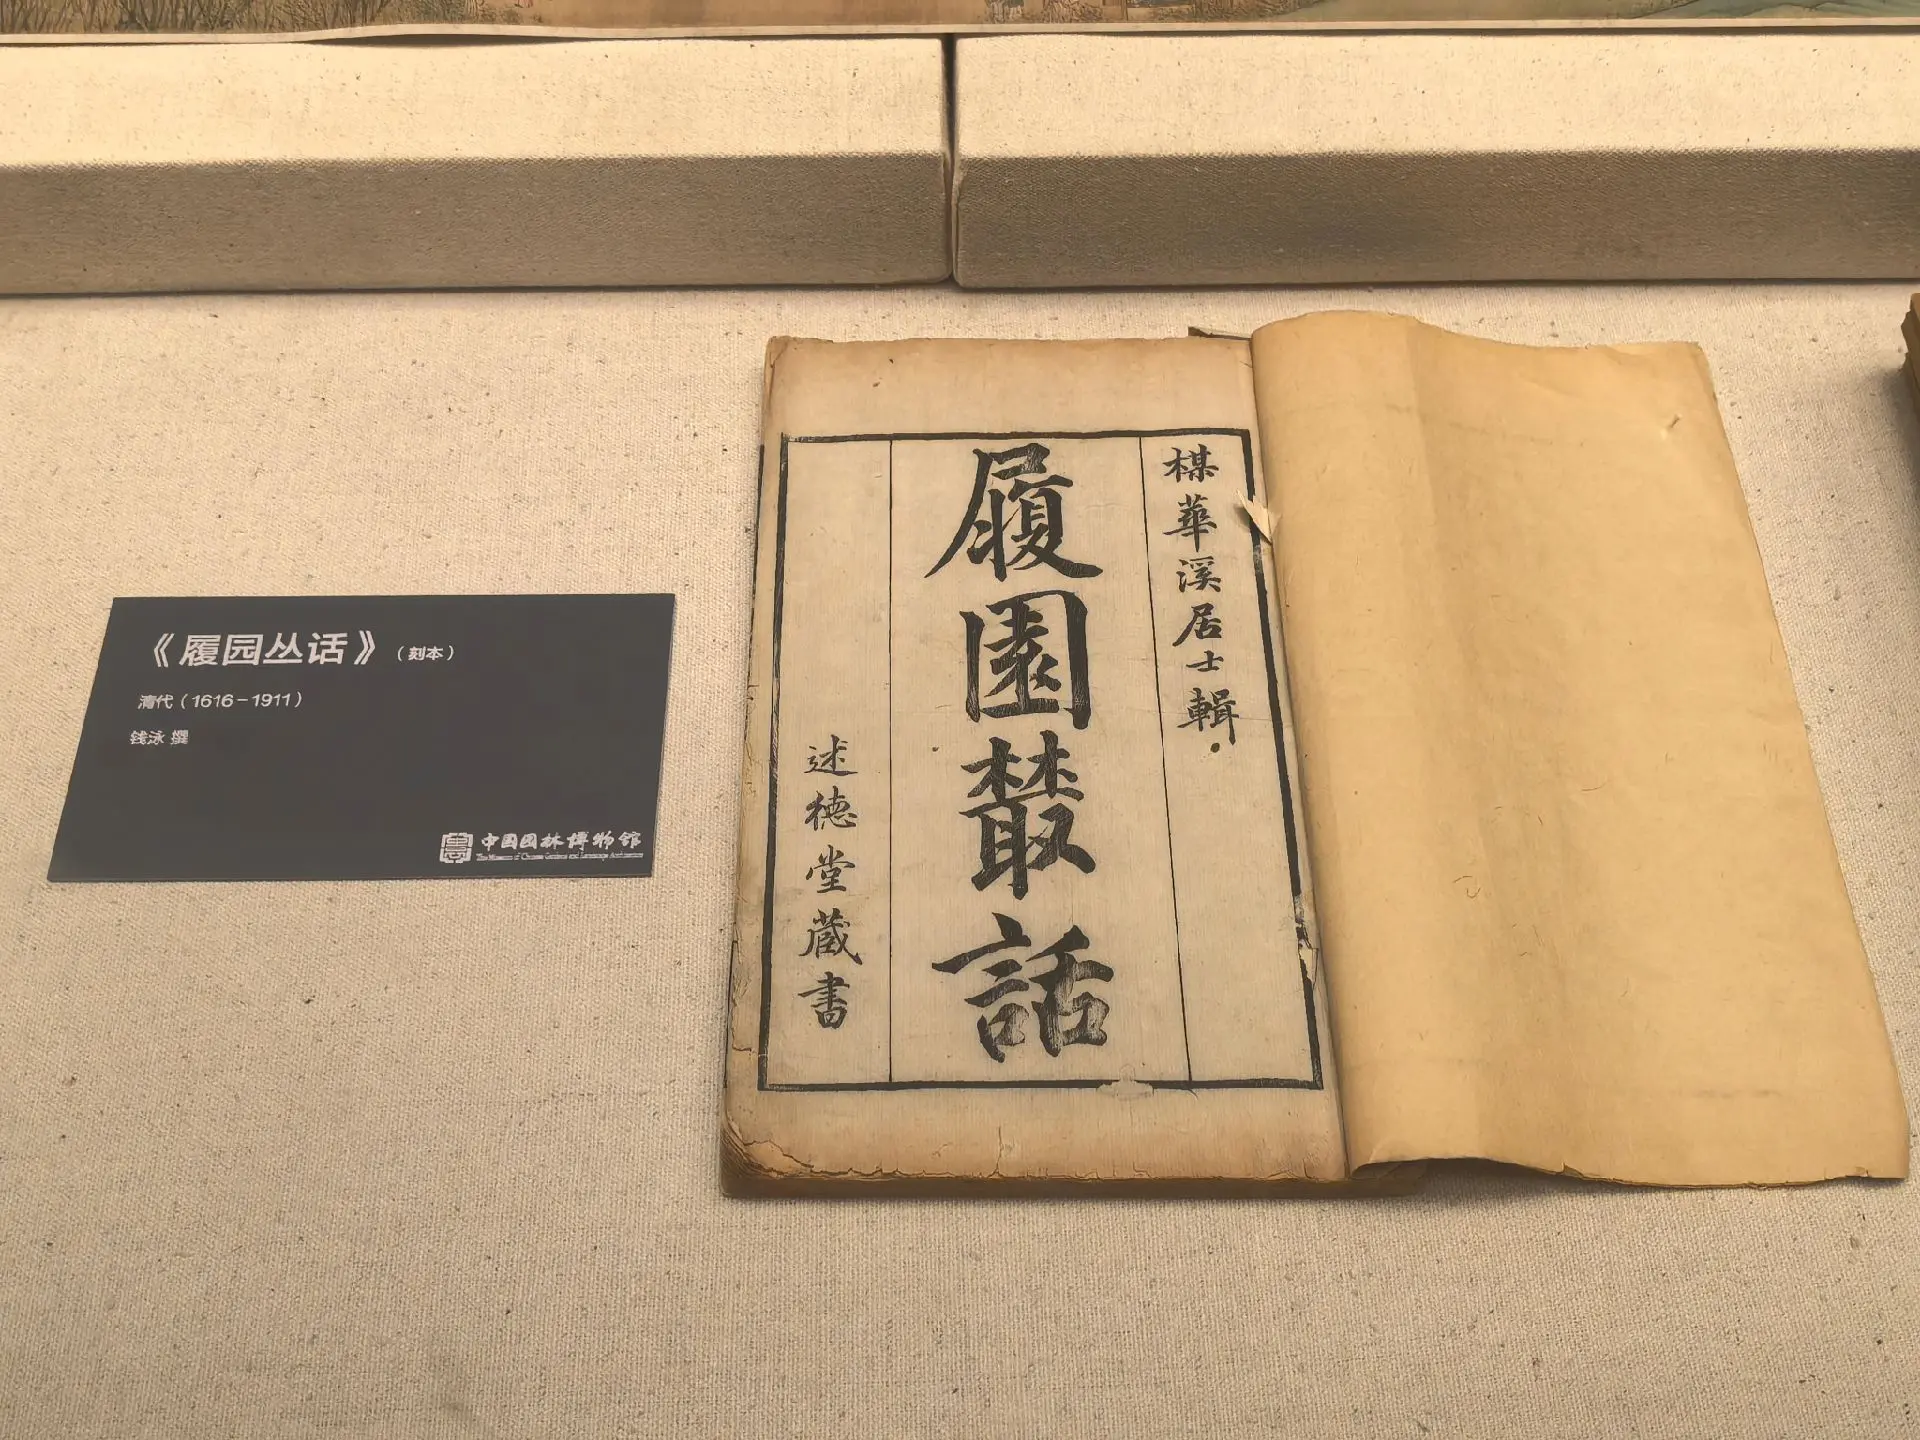 《履园丛话》（刻本）
清代（1616－1911）
钱泳 撰
中国园林博物馆
The Museum of Chinese Gardens and Landscape Architecture
楳華溪居士輯
履園叢話
述德堂藏書